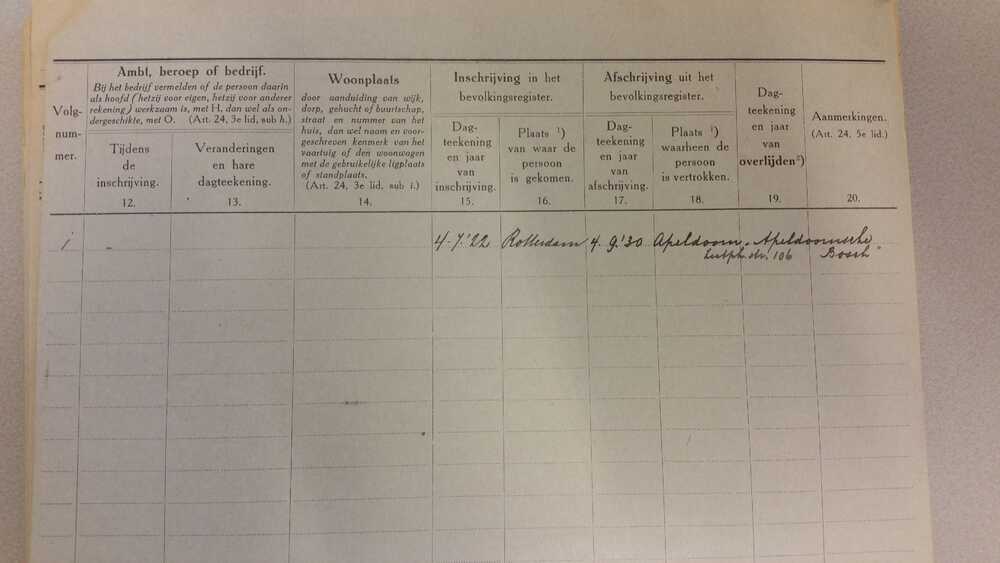 Volg-
num-
mer.
Ambt, beroep of bedrijf.
Bij het bedrijf vermelden of de persoon daarin
als hoofd (hetzij voor eigen, hetzij voor anderer
rekening) werkzaam is, met H, dan wel als on-
dergeschikte, met O. (Art. 24, 3e lid, sub h.)
Tijdens
de
inschrijving.
12.
Veranderingen
en hare
dagteekening.
13.
Woonplaats
door aanduiding van wijk,
dorp, gehucht of buurtschap,
straat en nummer van het
huis, dan wel naam en voor-
geschreven kenmerk van het
vaartuig of den woonwagen
met de gebruikelijke ligplaats
of standplaats.
(Art. 24, 3e lid, sub i.)
14.
Inschrijving in het
bevolkingsregister.
Dag-
teekening
en jaar
van
inschrijving.
15.
Plaats ¹)
van waar de
persoon
is gekomen.
16.
Afschrijving uit het
bevolkingsregister.
Dag-
teekening
en jaar
van
afschrijving.
17.
Plaats ¹)
waarheen de
persoon
is vertrokken.
18.
Dag-
teekening
en jaar
van
overlijden²)
19.
Aanmerkingen.
(Art. 24, 5e lid.)
20.
1 - 4-7.'22 Rotterdam 4.9.'30 Apeldoorn „Apeldoornsche
Zutph. str. 106 Bosch"